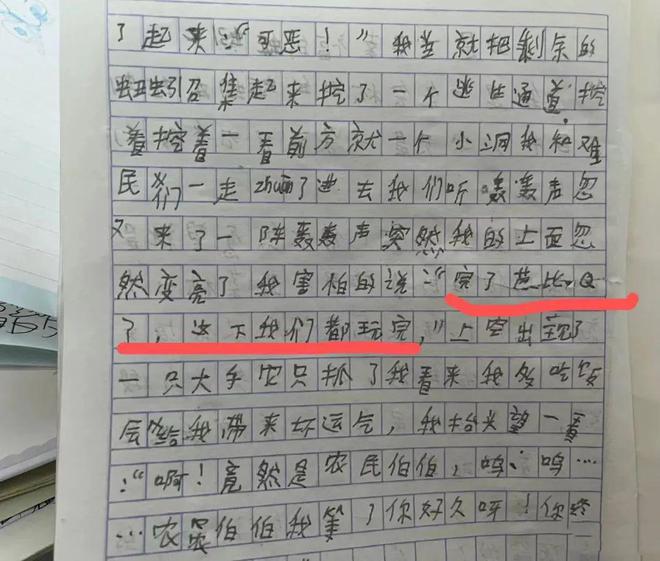 了起来:“可恶!”我当就把剩余的
蚯蚓召集起来挖了一个逃生通道.挖
着挖着一看前方就一个小洞我和难
民们一走zhuan了进去我们听轰轰声忽
又来了一阵轰轰声突然我的上面忽
然变亮了我害怕的说:“完了芭比Q
了,这下我们都玩完,”上空出现了
一只大手它只抓了我看来我多吃饭
会给我带来坏运气,我抬头望一看
:“啊!竟然是农民伯伯,呜呜…
…农民伯伯我等了你好久呀!你终